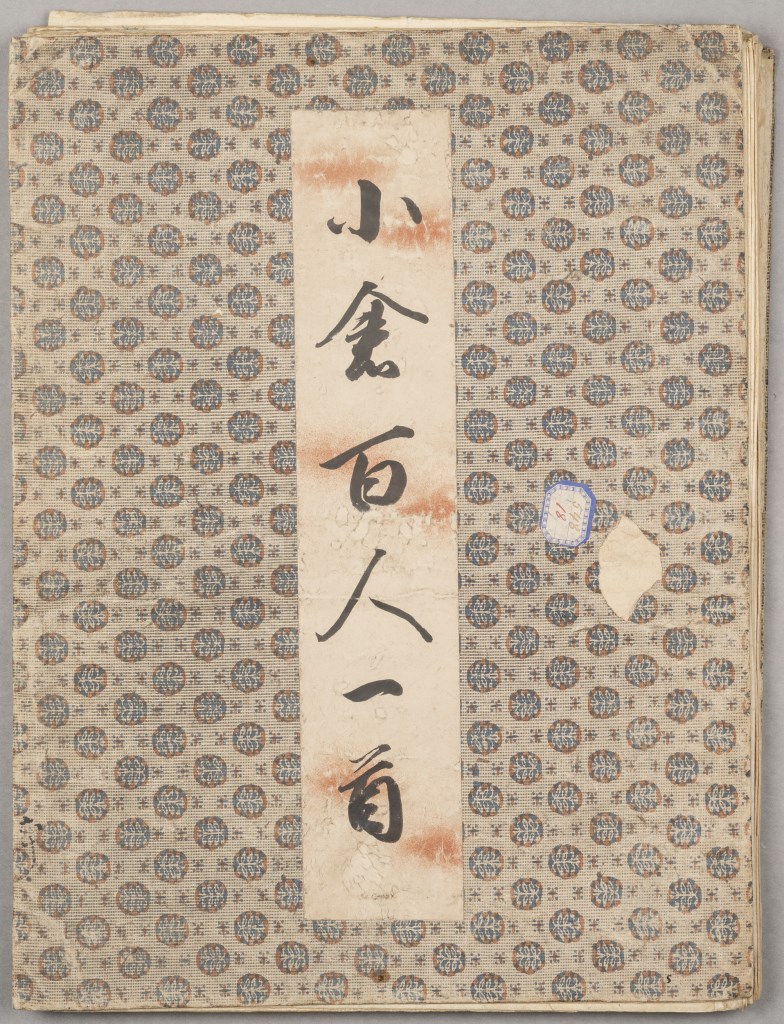 小倉百人一首